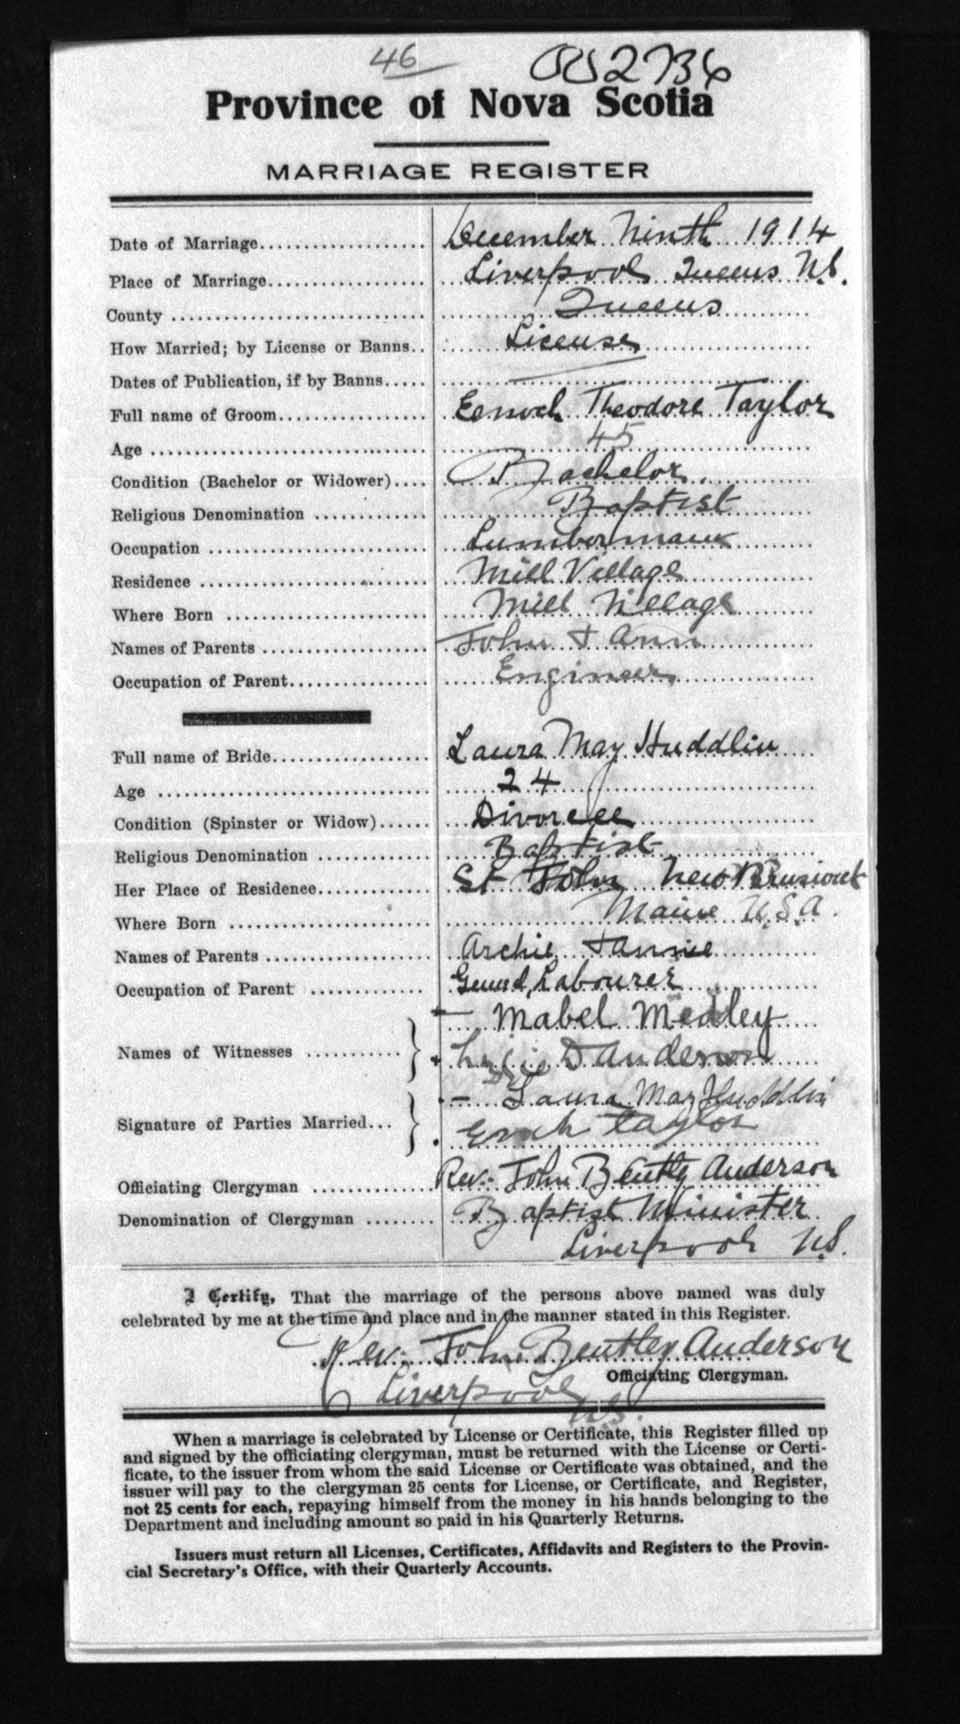 46 002736
Province of Nova Scotia
MARRIAGE REGISTER
Date of Marriage.................... December Ninth 1914
Place of Marriage................... Liverpool Queens N.S.
County .............................. Queens
How Married; by License or Banns.. License
Dates of Publication, if by Banns.....
Full name of Groom................. Eenoch Theodore Taylor
Age ................................. 45
Condition (Bachelor or Widower).... Bachelor.
Religious Denomination ............. Baptist
Occupation .......................... Lumberman
Residence ........................... Mill Village
Where Born ......................... Mill Village
Names of Parents ................... John & Ann
Occupation of Parent................ Engineer
Full name of Bride.................. Laura May Huddlin
Age ................................. 24
Condition (Spinster or Widow)...... Divorcee
Religious Denomination ............. Baptist
Her Place of Residence............. St John New Brunswick
Where Born ......................... Maine U.S.A.
Names of Parents ................... Archie & annie
Occupation of Parent .............. Labourer
Mabel Medley
Names of Witnesses ........... D Anderson
Laura May Huddlin
Signature of Parties Married... Enoch Taylor
Officiating Clergyman ............. Rev. John Bently Anderson
Denomination of Clergyman ........ Baptist Minister
Liverpool N.S.
I Certify, That the marriage of the persons above named was duly
celebrated by me at the time and place and in the manner stated in this Register.
Rev. John Bentley Anderson
Officiating Clergyman.
Liverpool
N.S.
When a marriage is celebrated by License or Certificate, this Register filled up
and signed by the officiating clergyman, must be returned with the License or Certi-
ficate, to the issuer from whom the said License or Certificate was obtained, and the
issuer will pay to the clergyman 25 cents for License, or Certificate, and Register,
not 25 cents for each, repaying himself from the money in his hands belonging to the
Department and including amount so paid in his Quarterly Returns.
Issuers must return all Licenses, Certificates, Affidavits and Registers to the Provin-
cial Secretary's Office, with their Quarterly Accounts.